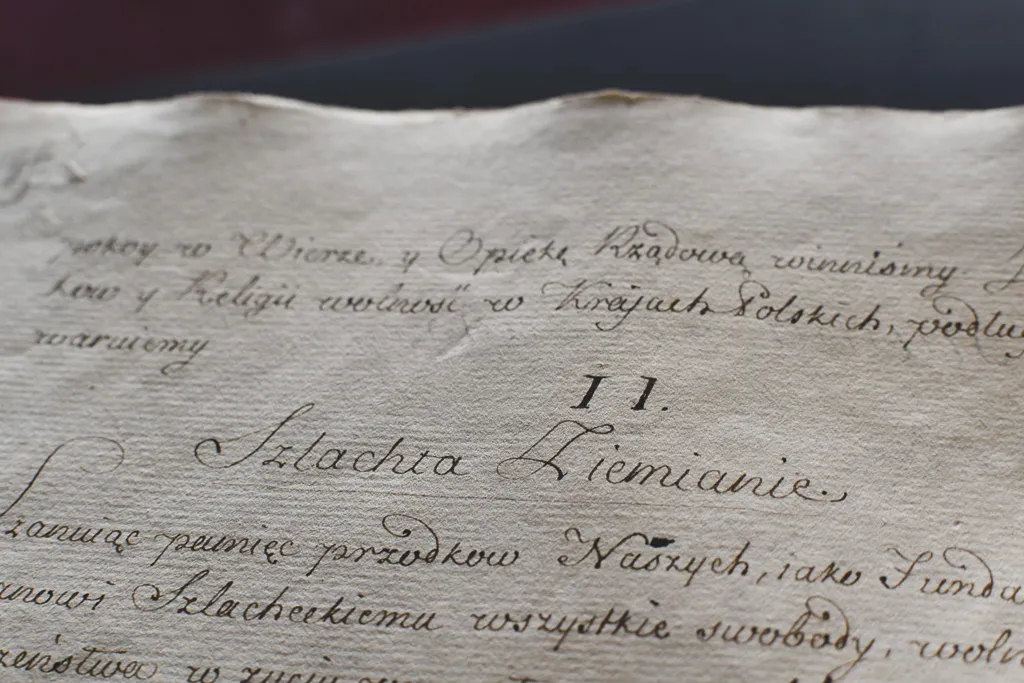 pokoy w Wierze y Opiekę Rządową winniśmy
kow y Religii wolność w Krajach Polskich, podług
waruiemy
II.
Szlachta Ziemianie.
Szanuiąc pamięć przodkow Naszych, iako Funda
anowi Szlacheckiemu wszystkie swobody, woln
zeństwa w życiu